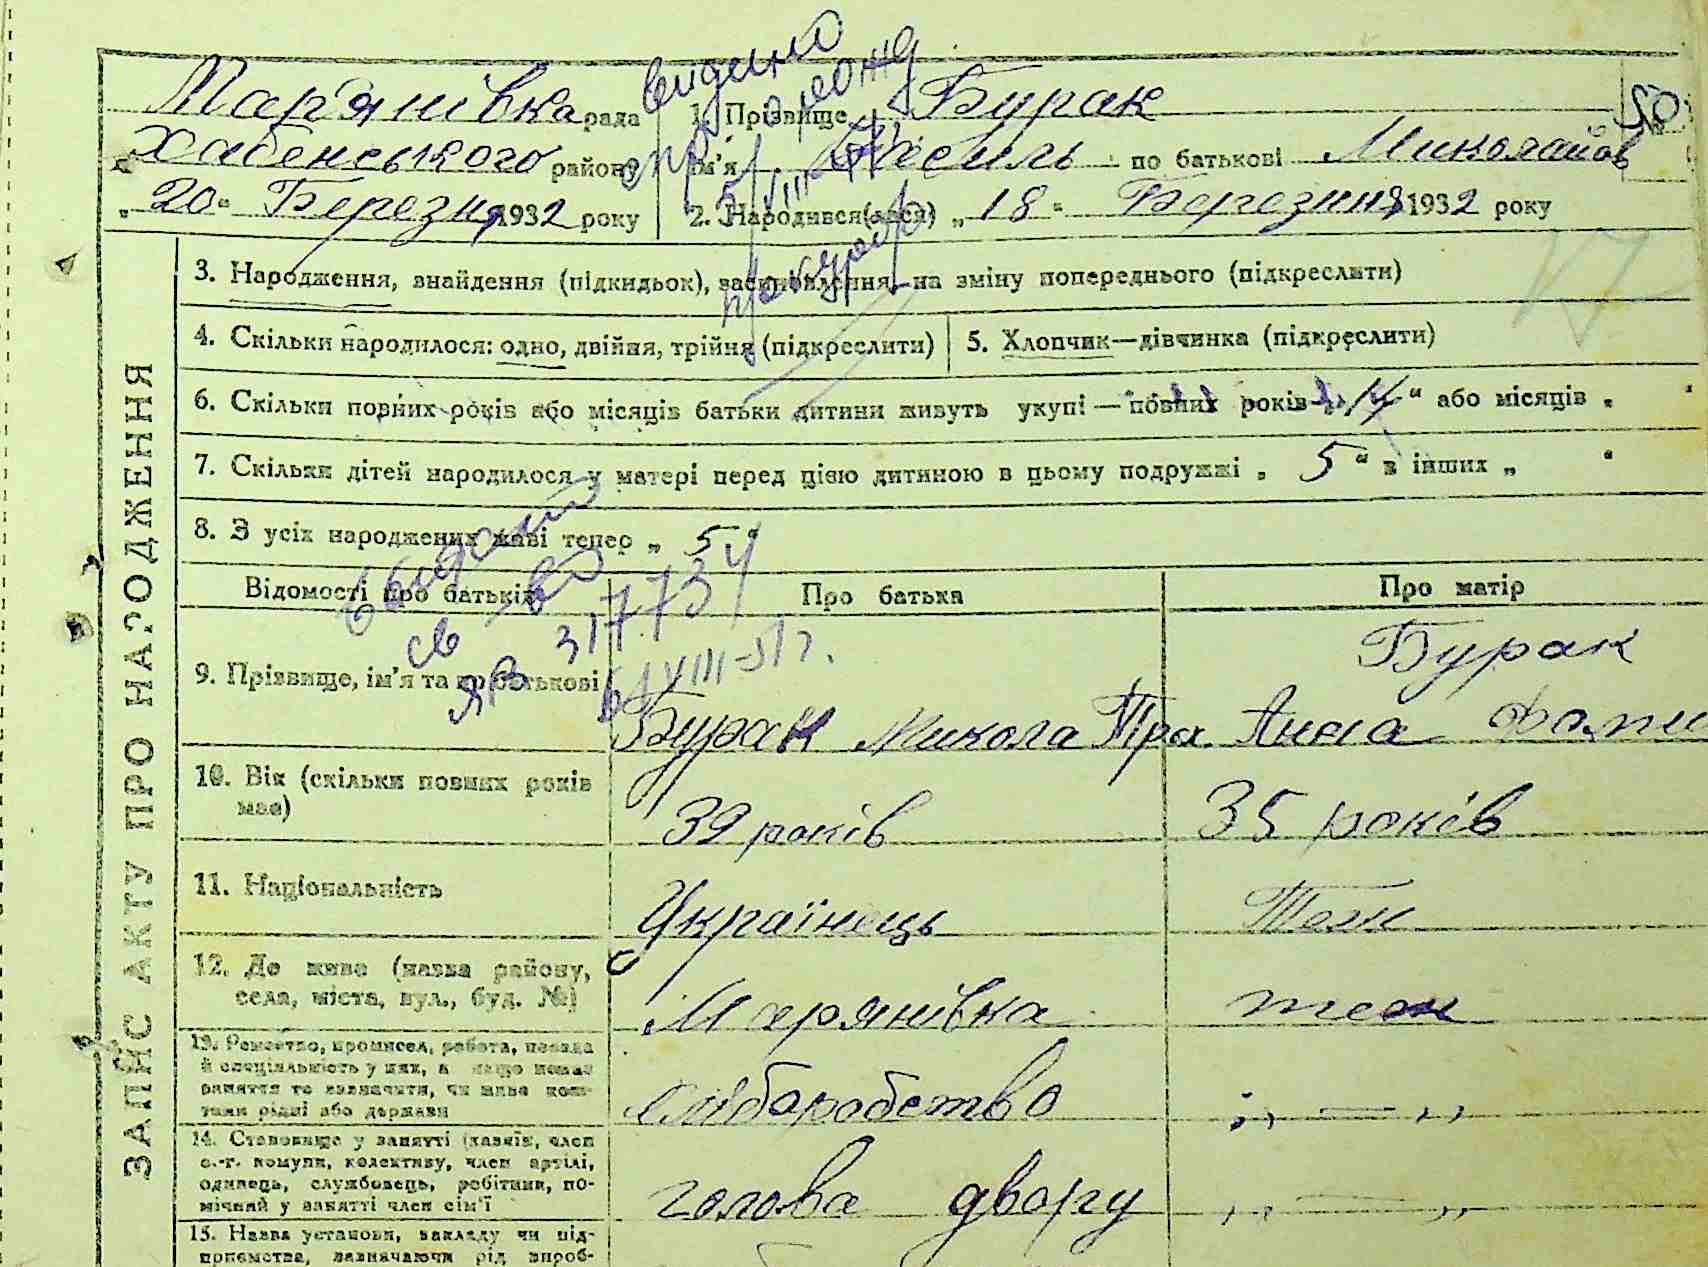 Мар'янівка рада
Хабенського району
„ 20 “ Березня 1932 року
1. Прізвище Бурак
50
ім'я Василь по батькові Миколайов
2. Народився(лася) „ 18 “ Березня 1932 року
видано
прокурор
ЗАПИС АКТУ ПРО НАРОДЖЕННЯ
3. Народження, знайдення (підкидьок), засиновлення, на зміну попереднього (підкреслити)
4. Скільки народилося: одно, двійня, трійня (підкреслити)
5. Хлопчик—дівчинка (підкреслити)
6. Скільки повних років або місяців батьки дитини живуть укупі — повних років „ 14 “ або місяців „ “
7. Скільки дітей народилося у матері перед цією дитиною в цьому подружжі „ 5 “ в інших „ “
8. З усіх народжених живі тепер „ 5 “
выдано
св-во
ЯВ 317734
6/VIII-51 г.
Відомості про батьків
Про батька
Про матір
9. Прізвище, ім'я та по батькові
Бурак Микола Тро
Бурак
Анна
10. Вік (скільки повних років має)
39 років
35 років
11. Національність
Українець
Теж
12. Де живе (назва району,
села, міста, вул., буд. №)
Марянівка
теж
13. Ремество, промисел, робота, посада
й спеціяльність у них, а якщо немає
заняття то зазначити, чи живе кош-
тами рідні або держави
хліборобство
„ — „
14. Становище у занятті (хазяїн, член
с.-г. комуни, колективу, член артілі,
одинець, службовець, робітник, по-
мічний у занятті член сім'ї
голова двору
„ — „
15. Назва установи, закладу чи під-
приємства, зазначаючи рід вироб-